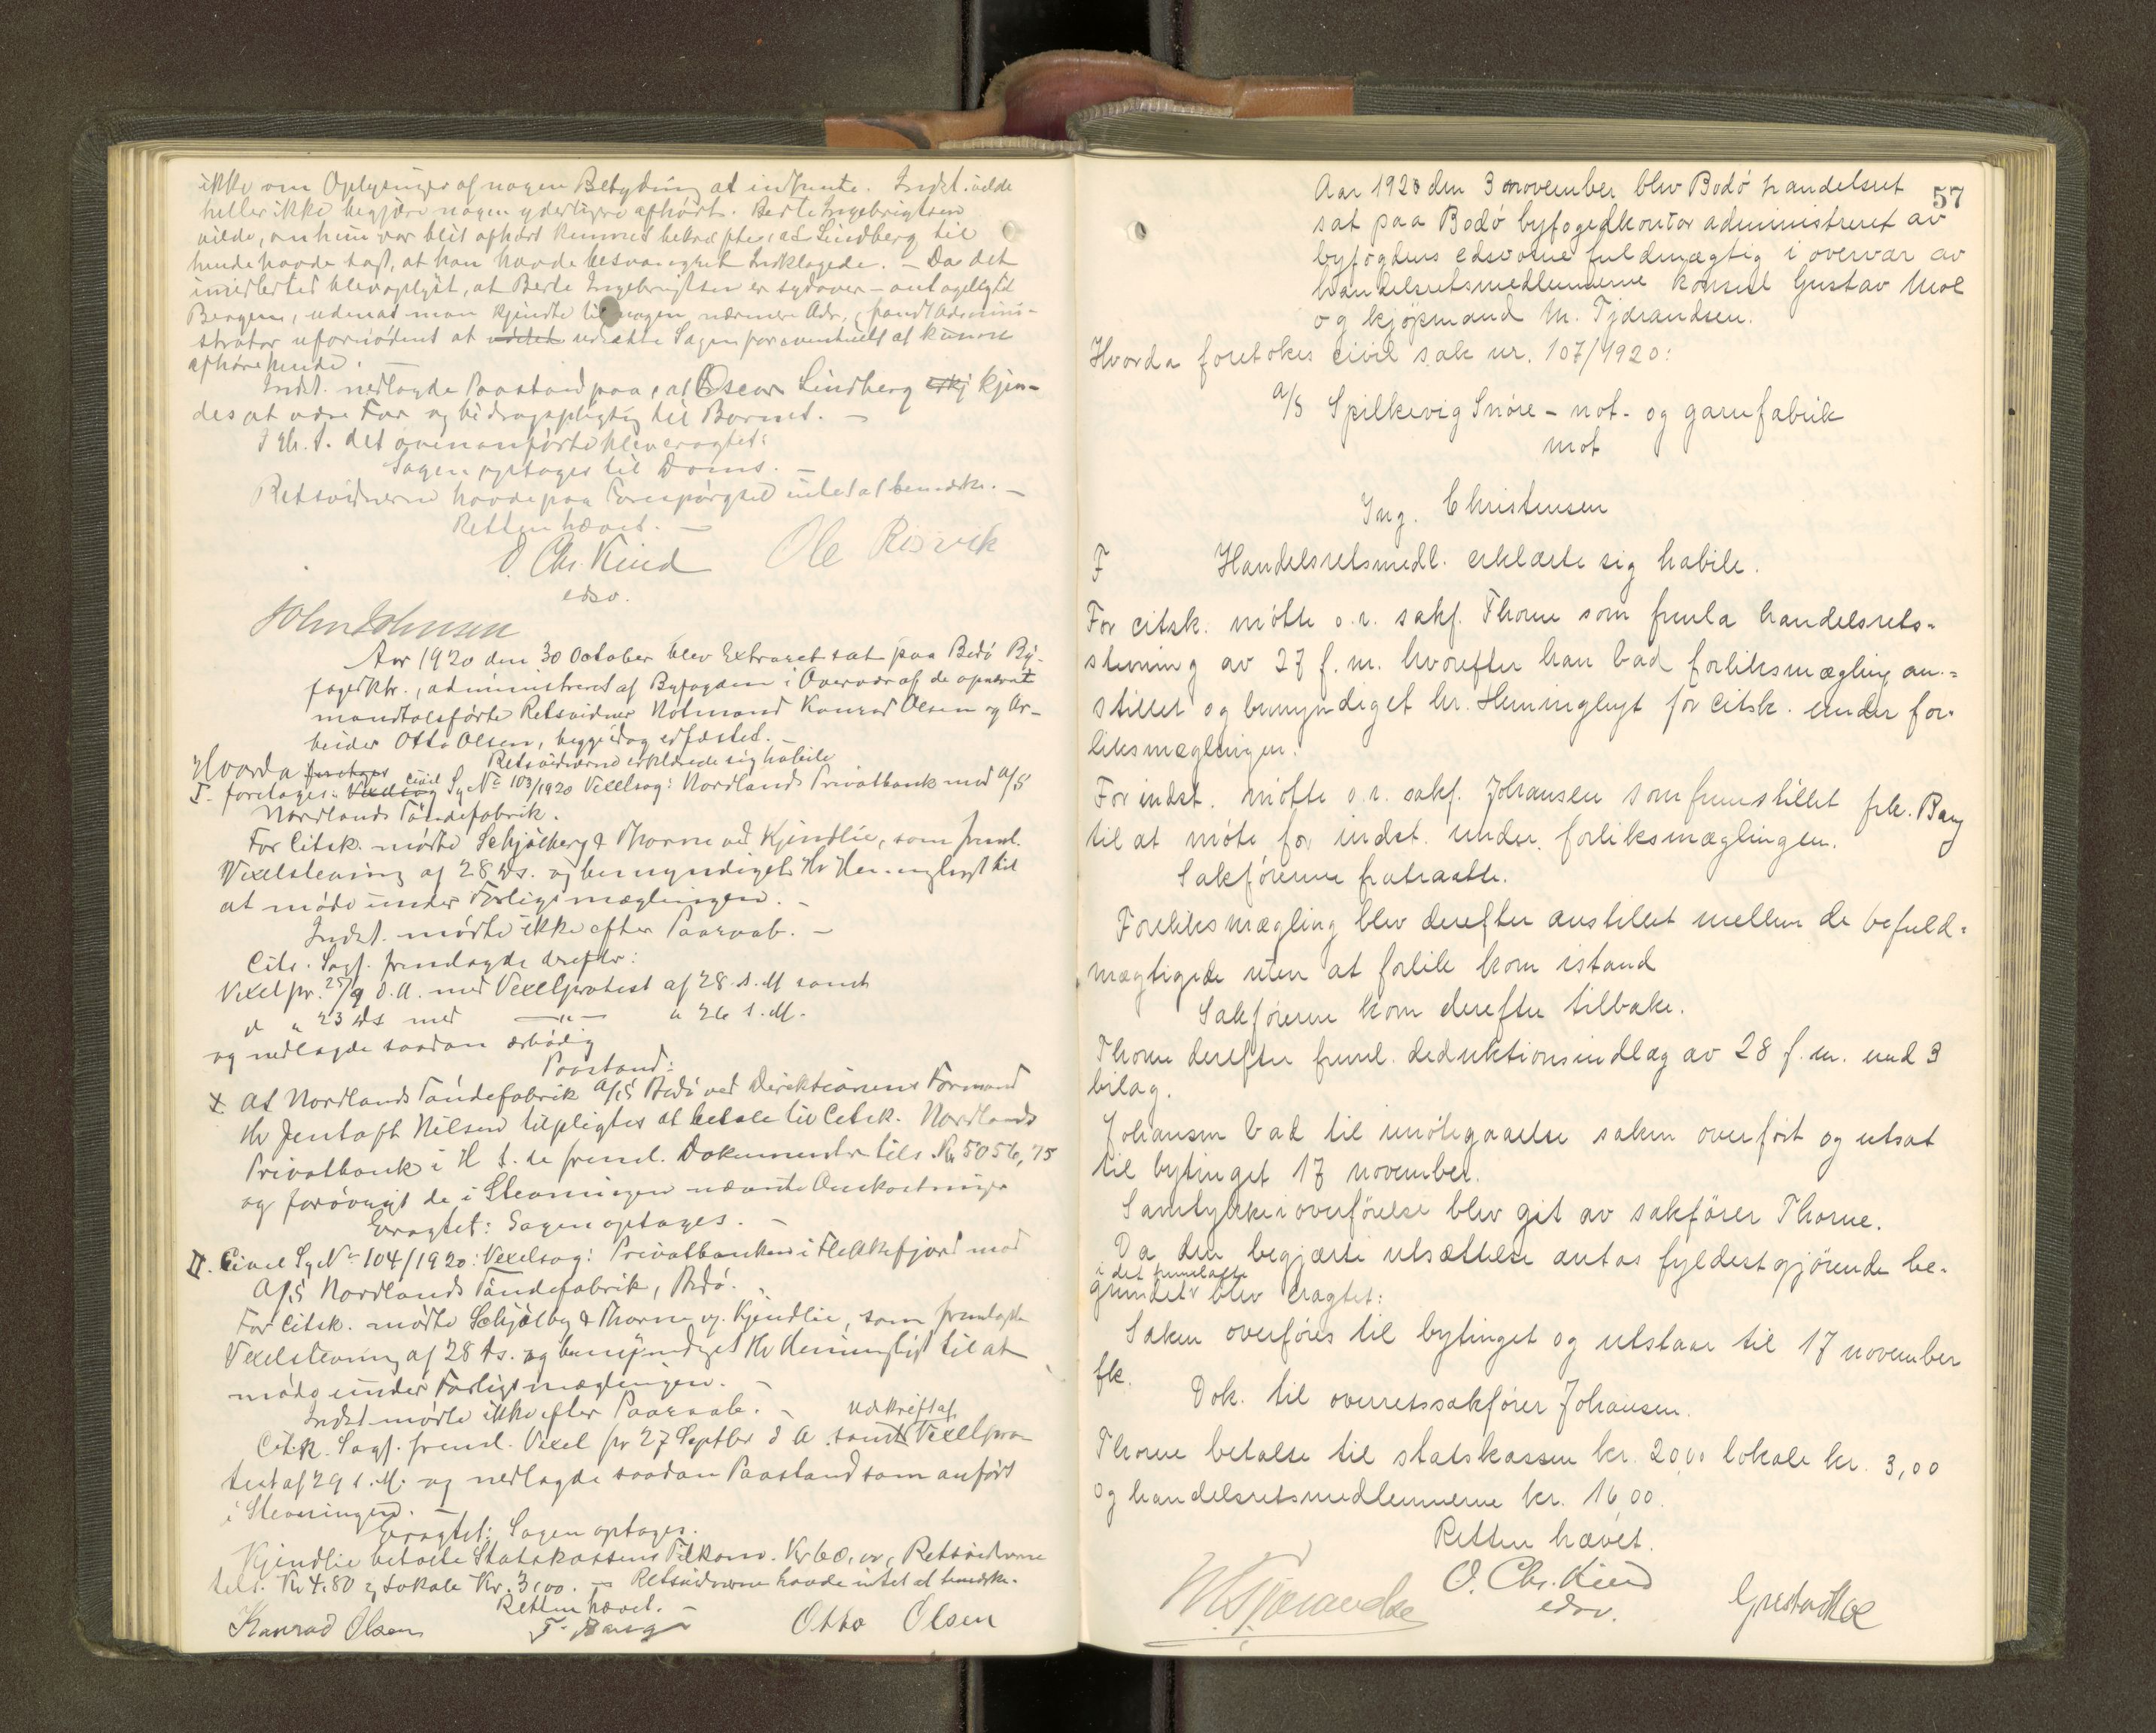 ikke om Oplysninger af nogen Betydning at indhente. Indst. vilde
heller ikke begjære nogen yderligere afhørt. Berte Ingebrigtsen
vilde, om hun var blit afhørt kunnet bekræfte, at Lindberg til
hende havde sagt, at han havde besvangret Indklagede. – Da det
imidlertid blev oplyst, at Berte Ingebrigtsen er sydover – antageligt
Bergen, uden at man kjendte til nogen nærmere Adr., fandt Admini-
strator ufornødent at udsætte Sagen for eventuelt at kunne
afhøre hende. –
Indst. nedlagde Paastand paa, at Oscar Lindberg kjen-
des at være Far og bidragspligtig til Barnet. –
I Hh. t. det ovenanførte blev eragtet:
Sagen optages til Doms. –
Retsvidnerne havde paa Forespørgsel intet at bemærke. –
Retten hævet. –
O. Chr. Kind Ole Risvik
edsv.
John Johnsen
Aar 1920 den 30 October blev Extraret sat paa Bodø By-
fogedktr., administreret af Byfogden i Overvær af de opnævnte
mandtalsførte Retsvidner Notmand Konrad Olsen og Ar-
beider Otto Olsen, begge idag edfæstet. –
Retsvidnerne erklærede sig habile
Hvorda foretages
I. foretages: Vexelsag Civil Sg No 103/1920 Vexelsag: Nordlands Privatbank mod A/S
Nordlands Tøndefabrik.
For Citsk. mødte Schjølberg & Thorne ved Kjendlie, som freml.
Vexelstevning af 28 ds. og bemyndiget Hr Henningløgt til
at møde under Forligsmæglingen. –
Indst. mødte ikke efter Paaraab. –
Cits. Sagf. fremlagde derefter:
Vexel pr. 25/9 d.A. med Vexelprotest af 28 d.M samt
" " 23 ds med —"— " 26 d.M.
og nedlagde saadan ærbødig
Paastand:
X. At Nordlands Tøndefabrik A/S Bodø ved Direktionens Formand
Hr Jentoft Nilsen tilpligtes at betale til Citsk. Nordlands
Privatbank i H t. de freml. Dokumenter tils. Kr 5056,75
og forøvrigt de i Stevningen nævnte Omkostninger
Eragtet: Sagen optages. –
II. Civil Sg No 104/1920: Vexelsag: Privatbanken i Flekkefjord mod
A/S Nordlands Tøndefabrik, Bodø.
For Citsk. mødte Schjølbg & Thorne v. Kjendlie, som fremlagde
Vexelstevning af 28 ds. og bemyndiget Hr Henningløgt til at
møde under Forligsmæglingen. –
Indst mødte ikke efter Paaraab. – Udskrift af
Citsk. Sagf. freml. Vexel pr 27 Septbr d A samt Vexelpro-
test af 29 s.M. og nedlagde saadan Paastand som anført
i Stevningen. –
Eragtet: Sagen optages.
Kjendlie betalte Statskassens Tilkom. Kr 60,00, Retsvidnerne
tils. Kr 4.80 og Lokale Kr. 3,00. – Retsvidnerne havde intet at bemærke.
Retten hævet. –
Konrad Olsen F. Bang Otto Olsen
57
Aar 1920 den 3 november blev Bodø handelsret
sat paa Bodø byfogedkontor administreret av
byfogdens edsvorne fuldmægtig i overvær av
handelsretsmedlemmerne konsul Gustav Moe
og kjøpmand M. Tjærandsen.
Hvorda foretokes civil sak nr. 107/1920:
A/S Spilkevig Snøre- not- og garnfabrik
mot
Ing. Christensen
F Handelsretsmedl. erklærte sig habile.
For citsk. møtte o.r. sakf. Thorne som fremla handelsrets-
stevning av 27 f. m. hvorefter han bad forliksmægling an-
stillet og bemyndiget hr. Henningløgt for citsk. under for-
liksmæglingen.
For indst. møtte o.r. sakf. Johansen som fremstillet frk. Bang
til at møte for indst. under forliksmæglingen.
Sakførerne fratraatte.
Forliksmægling blev derefter anstillet mellem de befuld-
mægtigede uten at forlik kom istand
Sakførerne kom derefter tilbake.
Thorne derefter freml. deduktionsindlæg av 28 f. m. med 3
bilag.
Johansen bad til imøtegaaelse saken overført og utsat
til bytinget 17 november.
Samtykke i overførelse blev git av sakfører Thorne.
Da den begjærte utsættelse antas fyldestgjørende be-
i det fremlagte
grundet blev eragtet:
Saken overføres til bytinget og utstaar til 17 november
fk.
Dok. til overretssakfører Johansen.
Thorne betalte til statskassen kr. 20,00 lokale kr. 3,00
og handelsretsmedlemmerne kr. 16,00.
Retten hævet.
M. Tjærandsen O. Chr. Kind Gustav Moe
edsv.